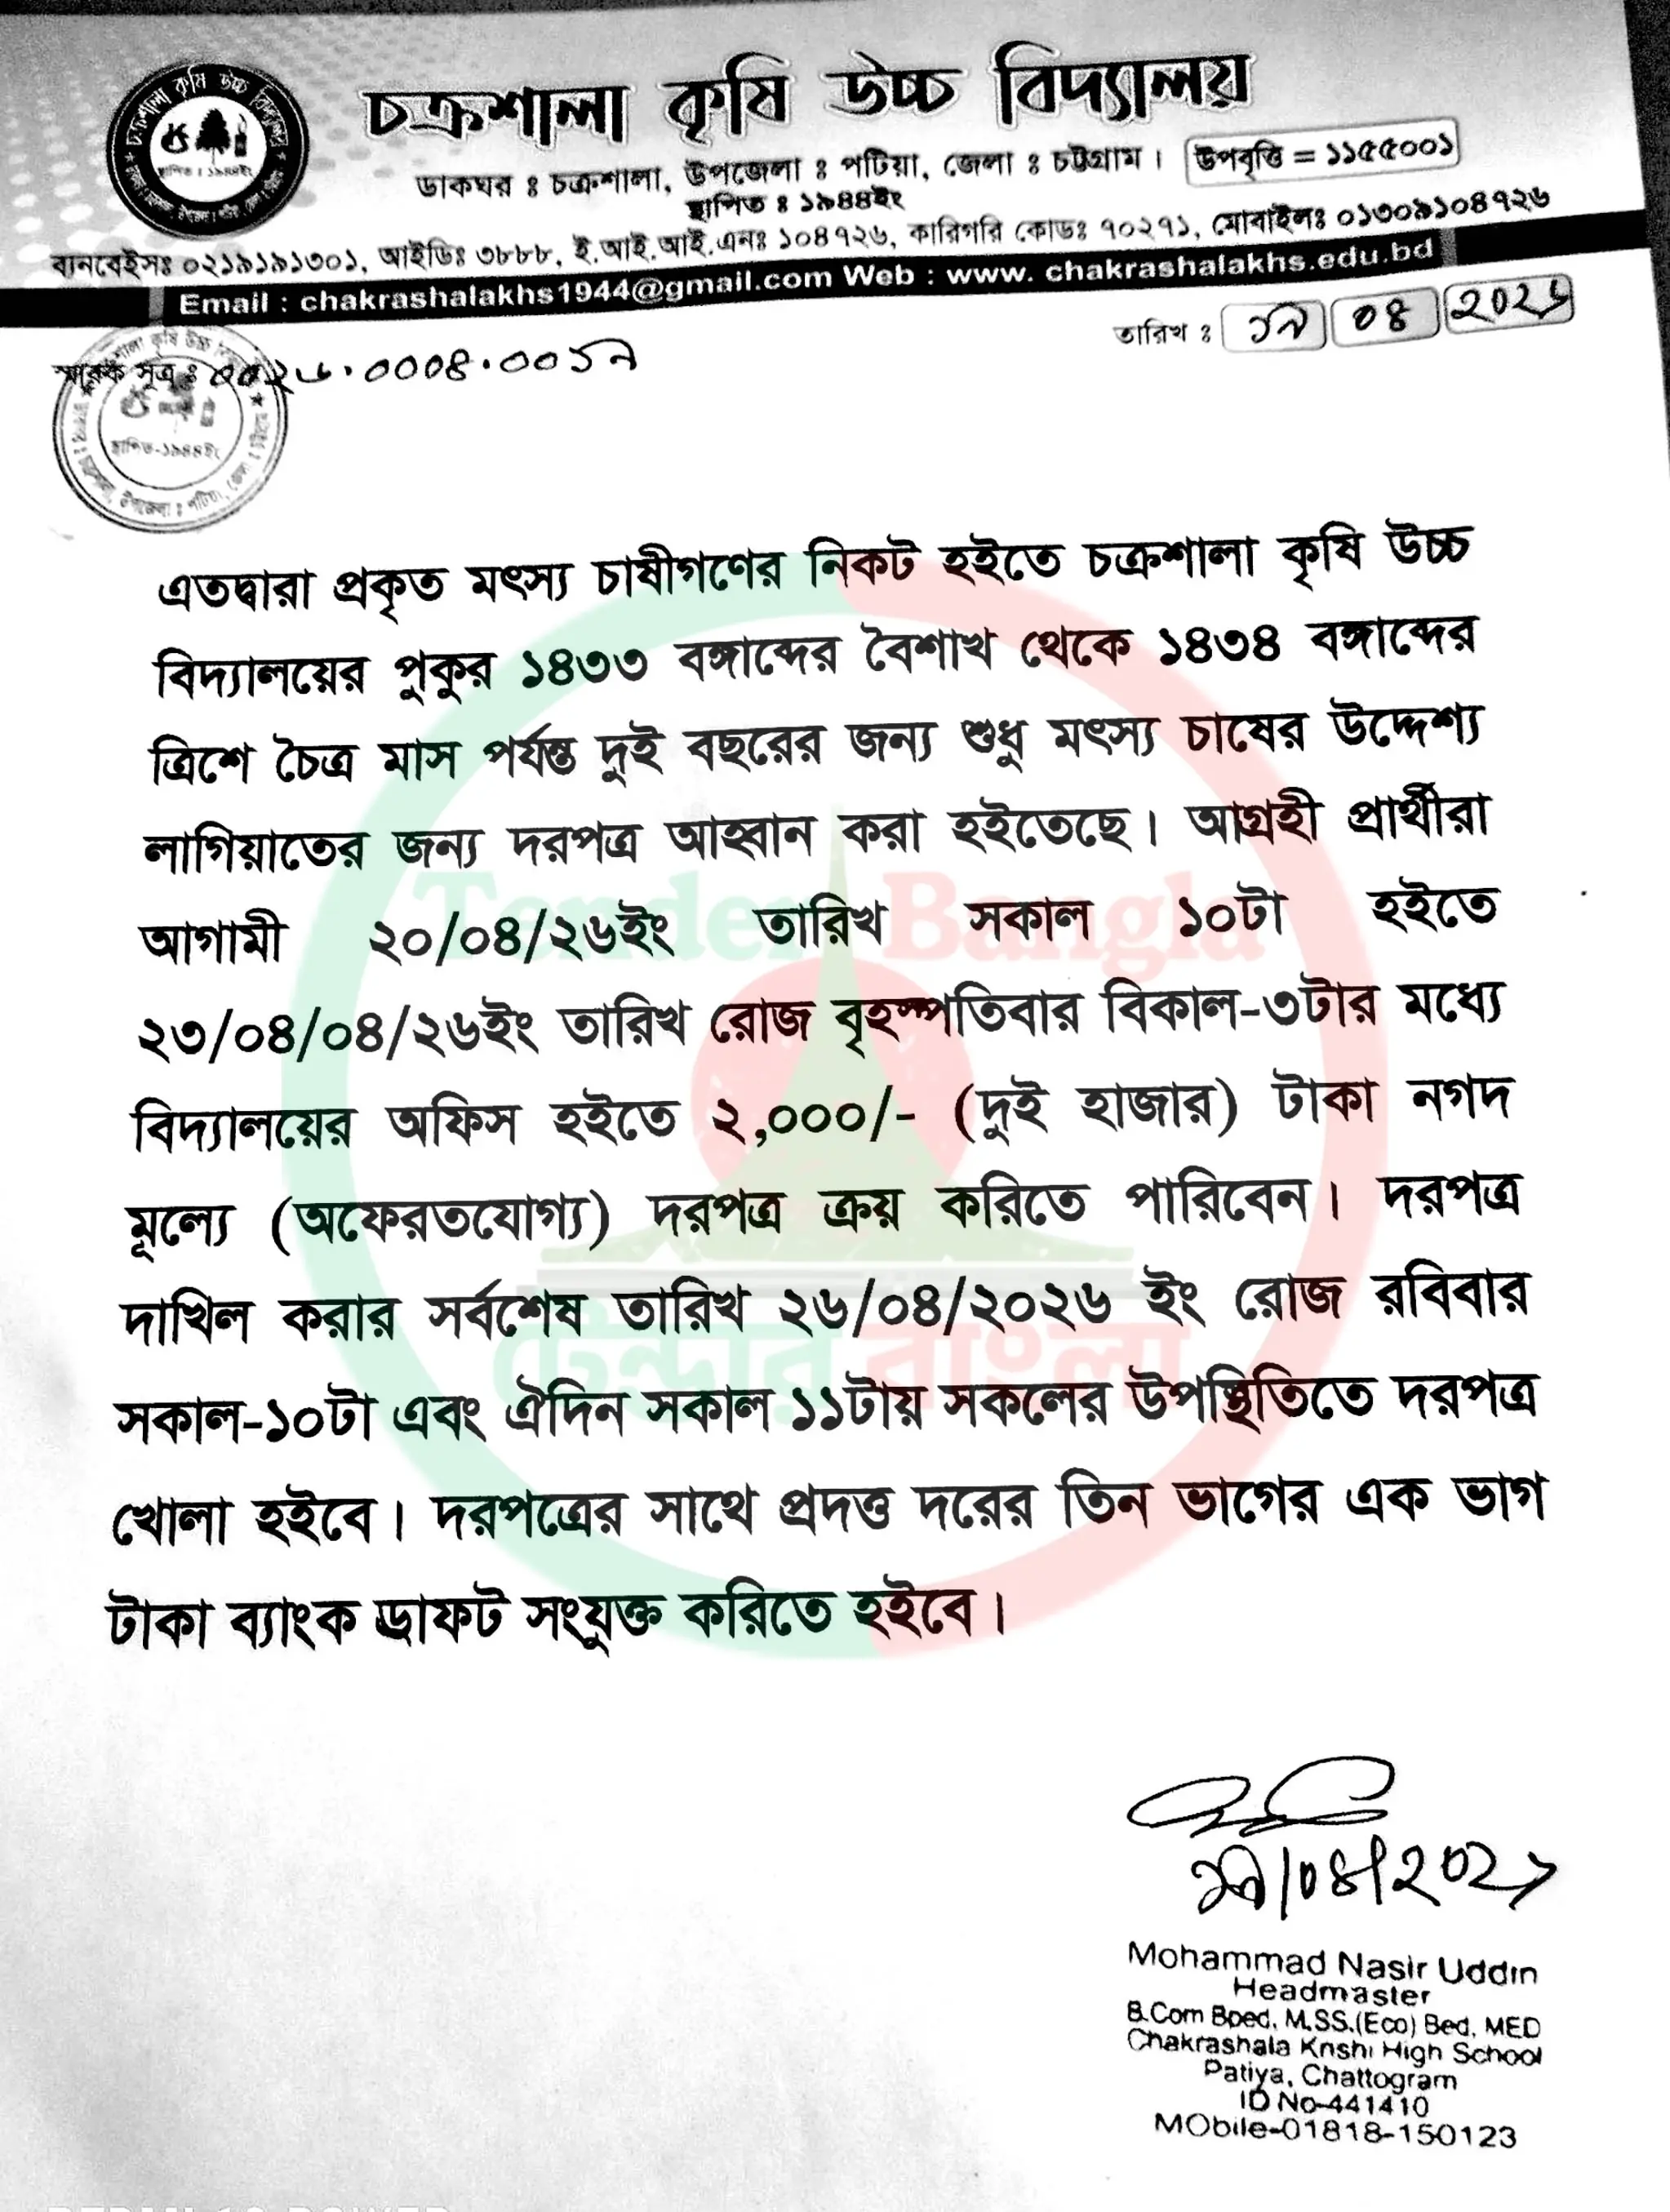 চক্রশালা কৃষি উচ্চ বিদ্যালয়
ডাকঘর ঃ চক্রশালা, উপজেলা ঃ পটিয়া, জেলা ঃ চট্টগ্রাম। উপবৃত্তি = ১১৫৫০০১
স্থাপিত ঃ ১৯৪৪ইং
ব্যানবেইসঃ ০২১৯১৯১৩০১, আইডিঃ ৩৮৮৮, ই.আই.আই.এনঃ ১০৪৭২৬, কারিগরি কোডঃ ৭০২৭১, মোবাইলঃ ০১৩০৯১০৪৭২৬
Email : chakrashalakhs1944@gmail.com Web : www. chakrashalakhs.edu.bd
তারিখ ঃ ১৯ ০৪ ২০২৬
স্মারক সূত্র ঃ
স্থাপিত-১৯৪৪ইং
এতদ্বারা প্রকৃত মৎস্য চাষীগণের নিকট হইতে চক্রশালা কৃষি উচ্চ
বিদ্যালয়ের পুকুর ১৪৩৩ বঙ্গাব্দের বৈশাখ থেকে ১৪৩৪ বঙ্গাব্দের
ত্রিশে চৈত্র মাস পর্যন্ত দুই বছরের জন্য শুধু মৎস্য চাষের উদ্দেশ্য
লাগিয়াতের জন্য দরপত্র আহ্বান করা হইতেছে। আগ্রহী প্রার্থীরা
আগামী ২০/০৪/২৬ইং তারিখ সকাল ১০টা হইতে
২৩/০৪/০৪/২৬ইং তারিখ রোজ বৃহস্পতিবার বিকাল-৩টার মধ্যে
বিদ্যালয়ের অফিস হইতে ২,০০০/- (দুই হাজার) টাকা নগদ
মূল্যে (অফেরতযোগ্য) দরপত্র ক্রয় করিতে পারিবেন। দরপত্র
দাখিল করার সর্বশেষ তারিখ ২৬/০৪/২০২৬ ইং রোজ রবিবার
সকাল-১০টা এবং ঐদিন সকাল ১১টায় সকলের উপস্থিতিতে দরপত্র
খোলা হইবে। দরপত্রের সাথে প্রদত্ত দরের তিন ভাগের এক ভাগ
টাকা ব্যাংক ড্রাফট সংযুক্ত করিতে হইবে।
Tender Bangla
টেন্ডার বাংলা
১৯/০৪/২০২৬
Mohammad Nasir Uddin
Headmaster
B.Com Bped, M.SS.(Eco) Bed, MED
Chakrashala Krishi High School
Patiya, Chattogram
ID No-441410
MObile-01818-150123